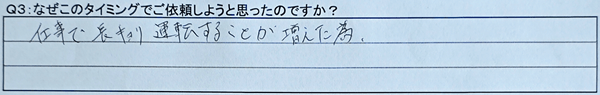 Q3:なぜこのタイミングでご依頼しようと思ったのですか？
仕事で長キョリ運転することが増えた為。